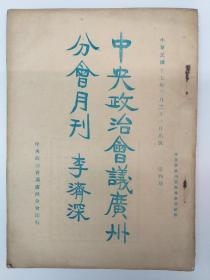 中華民國十七年三月三十一日出版
中央政治會議廣州
分會月刊 李濟深
中央政治會議廣州分會印行